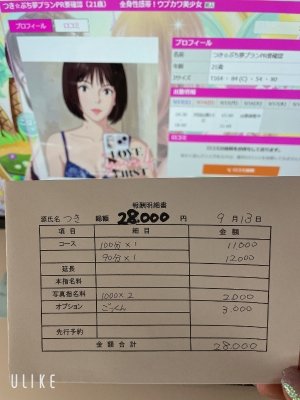 つき☆ぷち夢プランPR要確認（21歳） 全身性感帯！ウブカワ美少女
プロフィール 口コミ
プロフィール
名前 つき☆ぷち夢プランPR要確認
年齢 21歳
T164・84(C)・54・80
LOVE
FIRST
報酬明細書
源氏名 つき 総額 28,000 円 9月13日
項目 細目 金額
コース 100分×1 11000
90分×1 12000
延長
本指名料
写真指名料 1000×2 2,000
オプション ごっくん 3,000
先行予約
金額合計 28,000
ULIKE